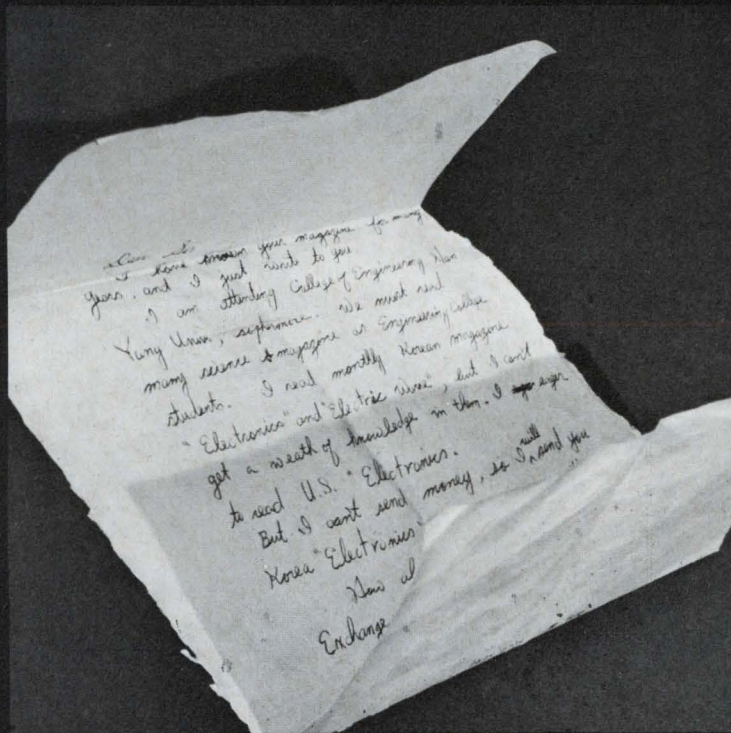 Dear Sir
I have known your magazine for many
years, and I just want to you
I am attending College of Engineering, Han
Yang Univ, sophomore. We must read
many science magazine as Engineering College
students. I read monthly Korean magazine
"Electronics" and "Electric
", but I can't
get a weath of knowledge in them. I eager
to read U.S. "Electronics.
But I can't send money, so I will send you
Korea "Electronics"
How a
Exchange